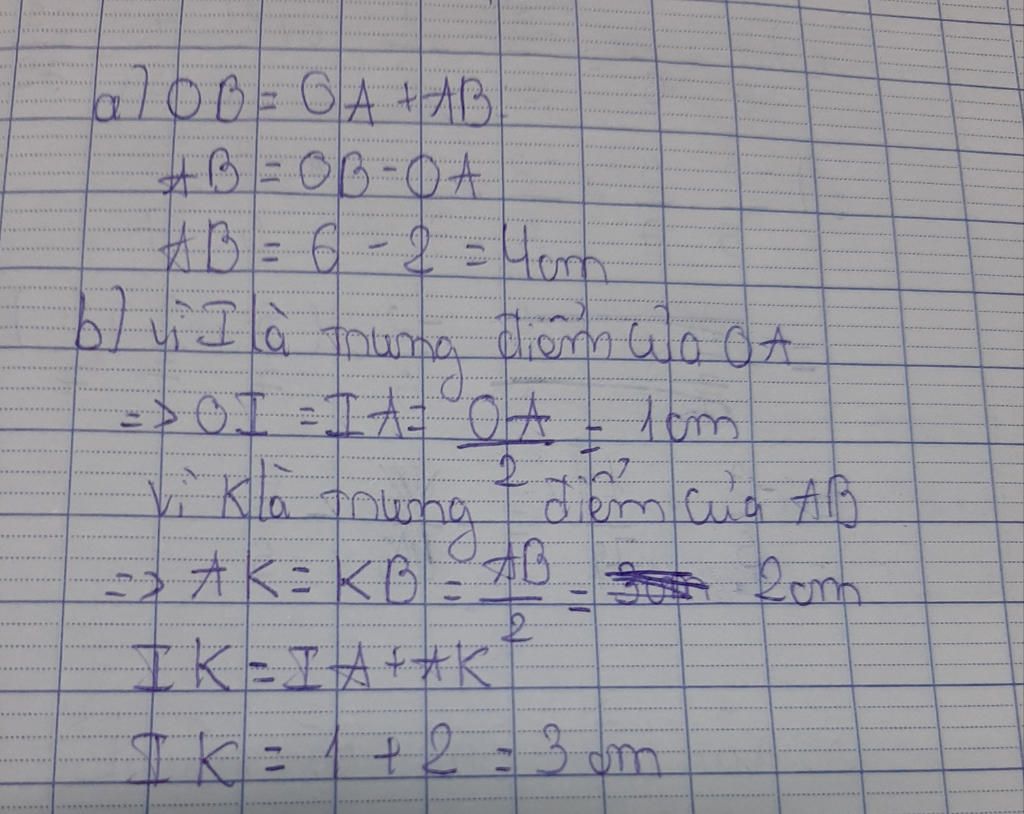 a) OB = OA + AB
AB = OB - OA
AB = 6 - 2 = 4cm
b) Vì I là trung điểm của OA
=> OI = IA = OA/2 = 1cm
Vì K là trung điểm của AB
=> AK = KB = AB/2 = 2cm
IK = IA + AK
IK = 1 + 2 = 3cm